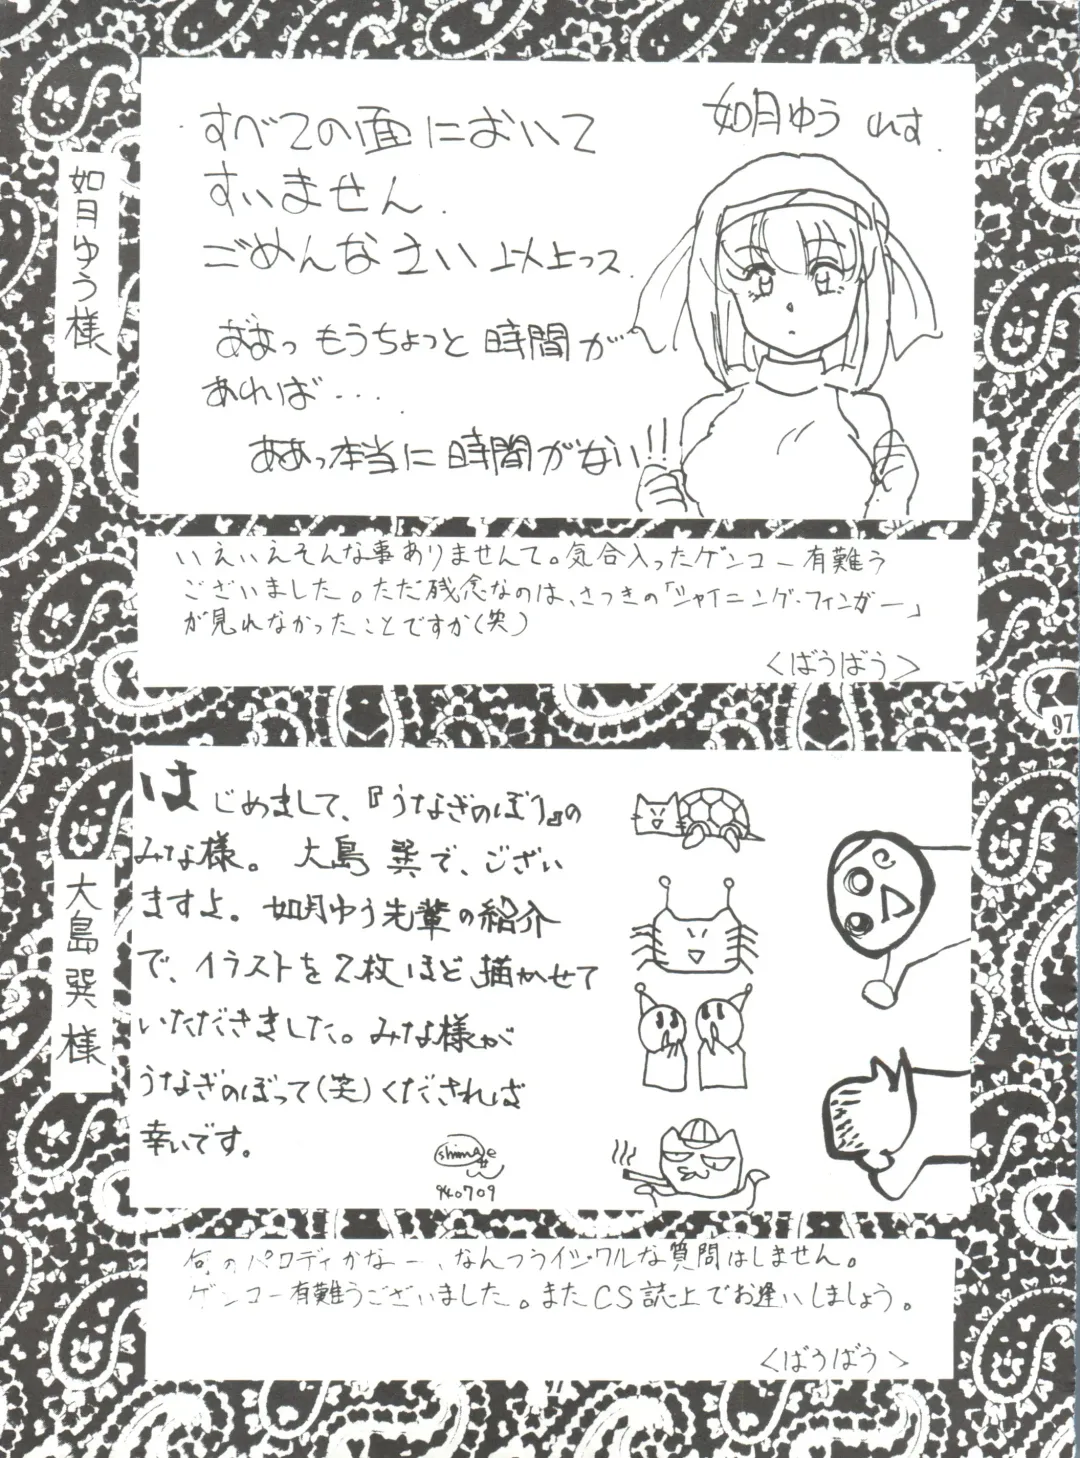 如月ゆう様
如月ゆうっす.
すべての面において
すいません.
ごめんなさい以上っス.
ああっもうちょっと時間が
あれば....
ああっ本当に時間がない!!
いえいえそんな事ありませんて。気合入ったゲンコー有難う
ございました。ただ残念なのは、さつきの「シャイニング・フィンガー」
が見れなかったことですか(笑)
<ばうばう>
97
大島巽様
はじめまして、『うなぎのぼり』の
みな様。大島 巽で、ござい
ますよ。如月ゆう先輩の紹介
で、イラストを2枚ほど描かせて
いただきました。みな様が
うなぎのぼって(笑)くだされば
幸いです。
940709
何のパロディかなー、なんつうイジワルな質問はしません。
ゲンコー有難うございました。またCS誌上でお逢いしましょう。
<ばうばう>